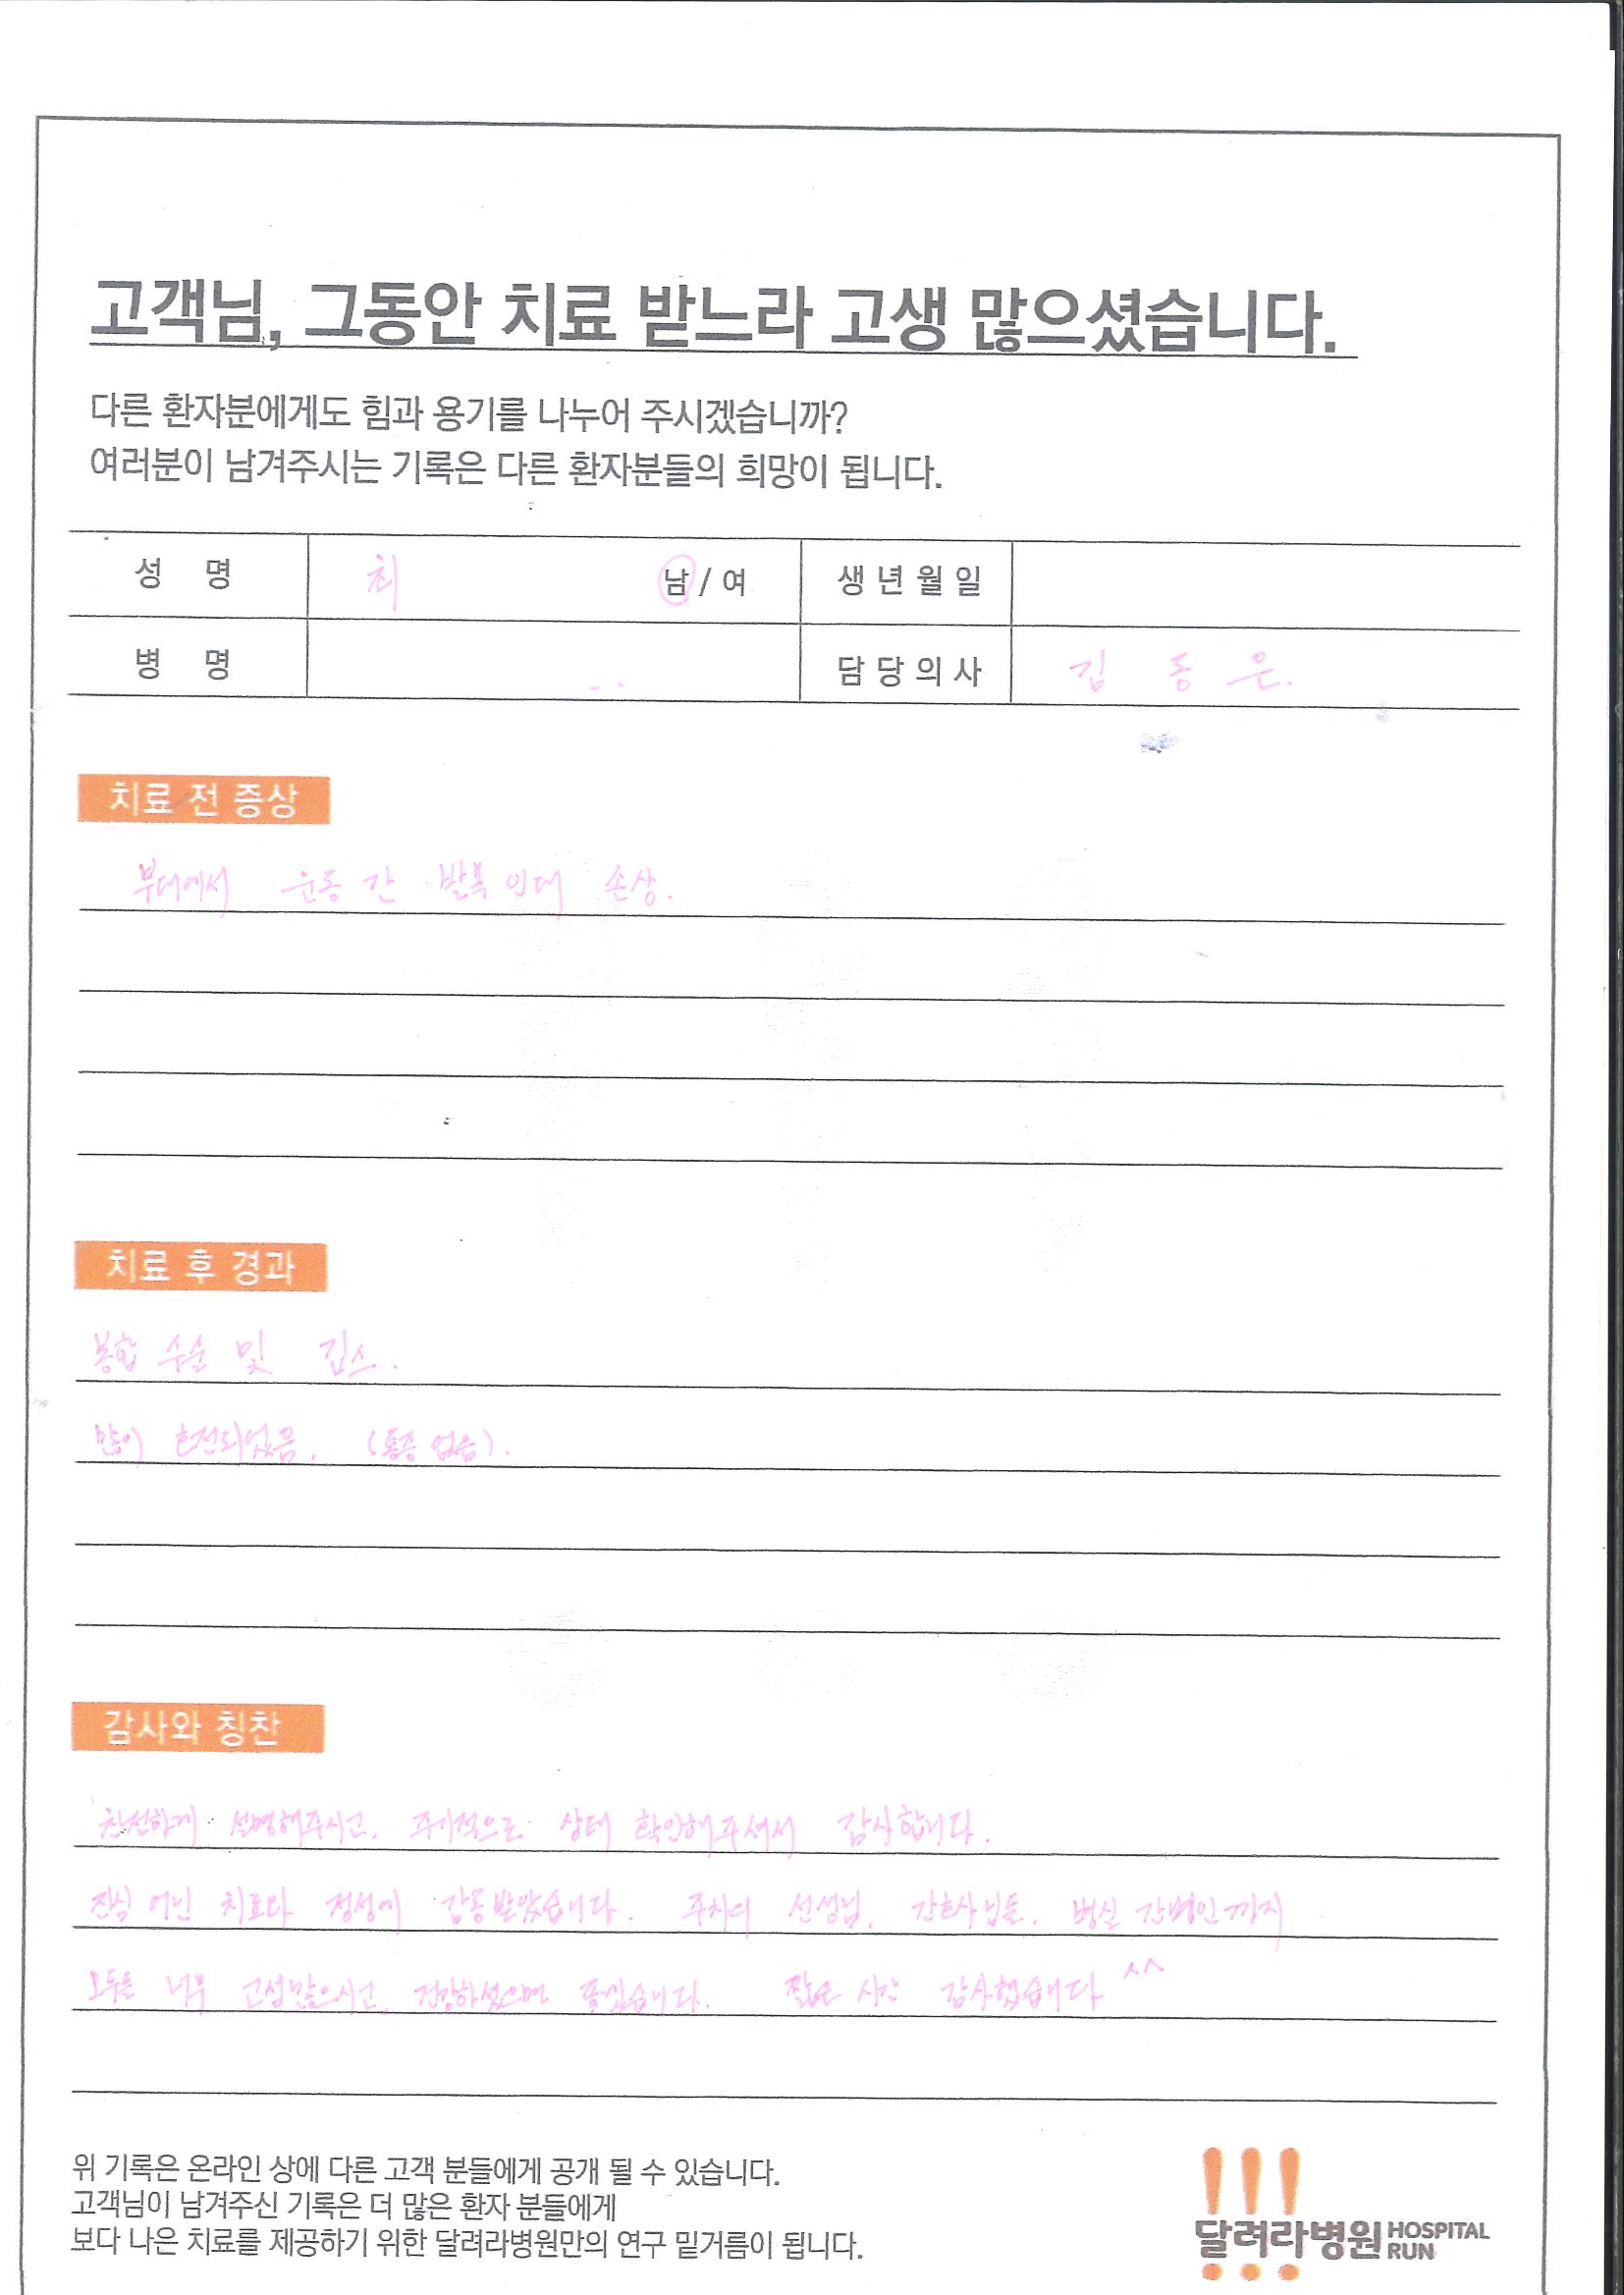 고객님, 그동안 치료 받느라 고생 많으셨습니다.
다른 환자분에게도 힘과 용기를 나누어 주시겠습니까?
여러분이 남겨주시는 기록은 다른 환자분들의 희망이 됩니다.
성 명 최 남 / 여 생년월일
병 명 담당의사 김 동 은.
치료 전 증상
부대에서 운동 간 발목 인대 손상.
치료 후 경과
봉합 수술 및 깁스.
많이 호전되었음. (통증 없음).
감사와 칭찬
친절하게 설명해주시고, 주기적으로 상태 확인해주셔서 감사합니다.
진심 어린 치료다 정성에 감동받았습니다. 주치의 선생님, 간호사님들, 병실 간병인까지
모두들 너무 고생많으시고, 건강하셨으면 좋겠습니다. 짧은 시간 감사했습니다 ^^
위 기록은 온라인 상에 다른 고객 분들에게 공개 될 수 있습니다.
고객님이 남겨주신 기록은 더 많은 환자 분들에게
보다 나은 치료를 제공하기 위한 달려라병원만의 연구 밑거름이 됩니다.
달려라병원 HOSPITAL RUN